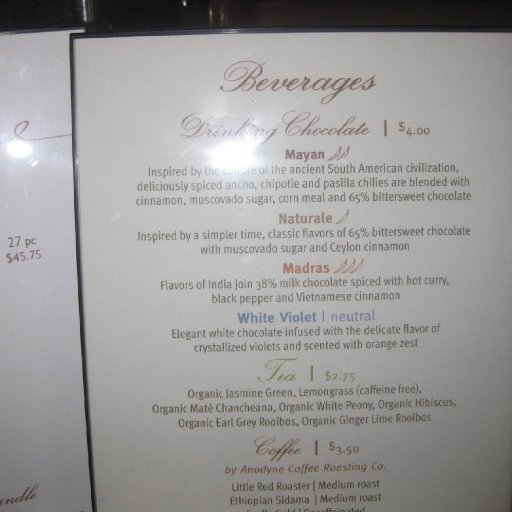 Beverages
Drinking Chocolate | $4.00
Mayan
Inspired by the culture of the ancient South American civilization,
deliciously spiced ancho, chipotle and pasilla chilies are blended with
cinnamon, muscovado sugar, corn meal and 65% bittersweet chocolate
Naturale
Inspired by a simpler time, classic flavors of 65% bittersweet chocolate
with muscovado sugar and Ceylon cinnamon
Madras
Flavors of India join 38% milk chocolate spiced with hot curry,
black pepper and Vietnamese cinnamon
White Violet | neutral
Elegant white chocolate infused with the delicate flavor of
crystallized violets and scented with orange zest
Tea | $2.75
Organic Jasmine Green, Lemongrass (caffeine free),
Organic Maté Chancheana, Organic White Peony, Organic Hibiscus,
Organic Earl Grey Rooibos, Organic Ginger Lime Rooibos
Coffee | $3.50
by Anodyne Coffee Roasting Co.
Little Red Roaster | Medium roast
Ethiopian Sidama | Medium roast
27 pc
$45.75